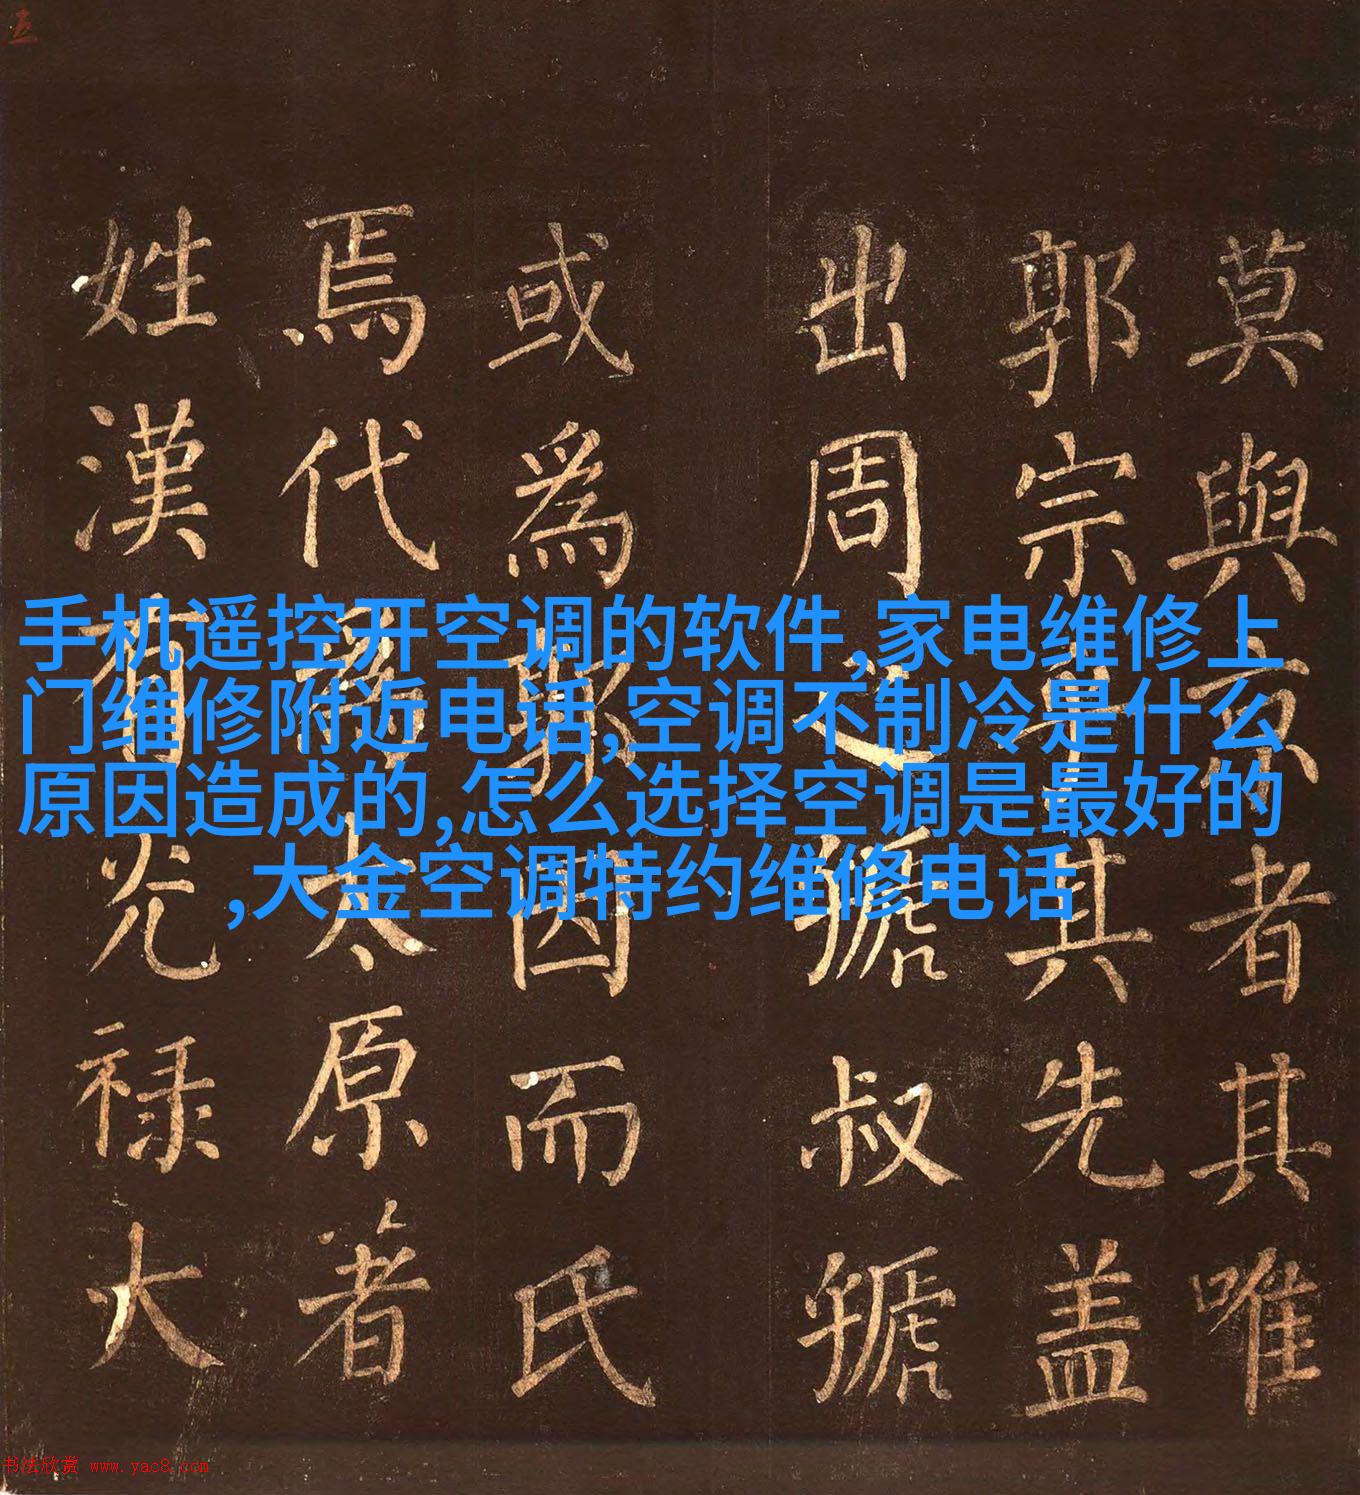 手机遥控开空调的软件,家电维修上
门维修附近电话,空调不制冷是什么
原因造成的,怎么选择空调是最好的
,大金空调特约维修电话
莫與京者其唯
郭宗乎其先盖
出周之虢叔虢
或為郭因而氏
焉代為太原著
姓漢有光禄大
书法欣赏 www.yac8.com